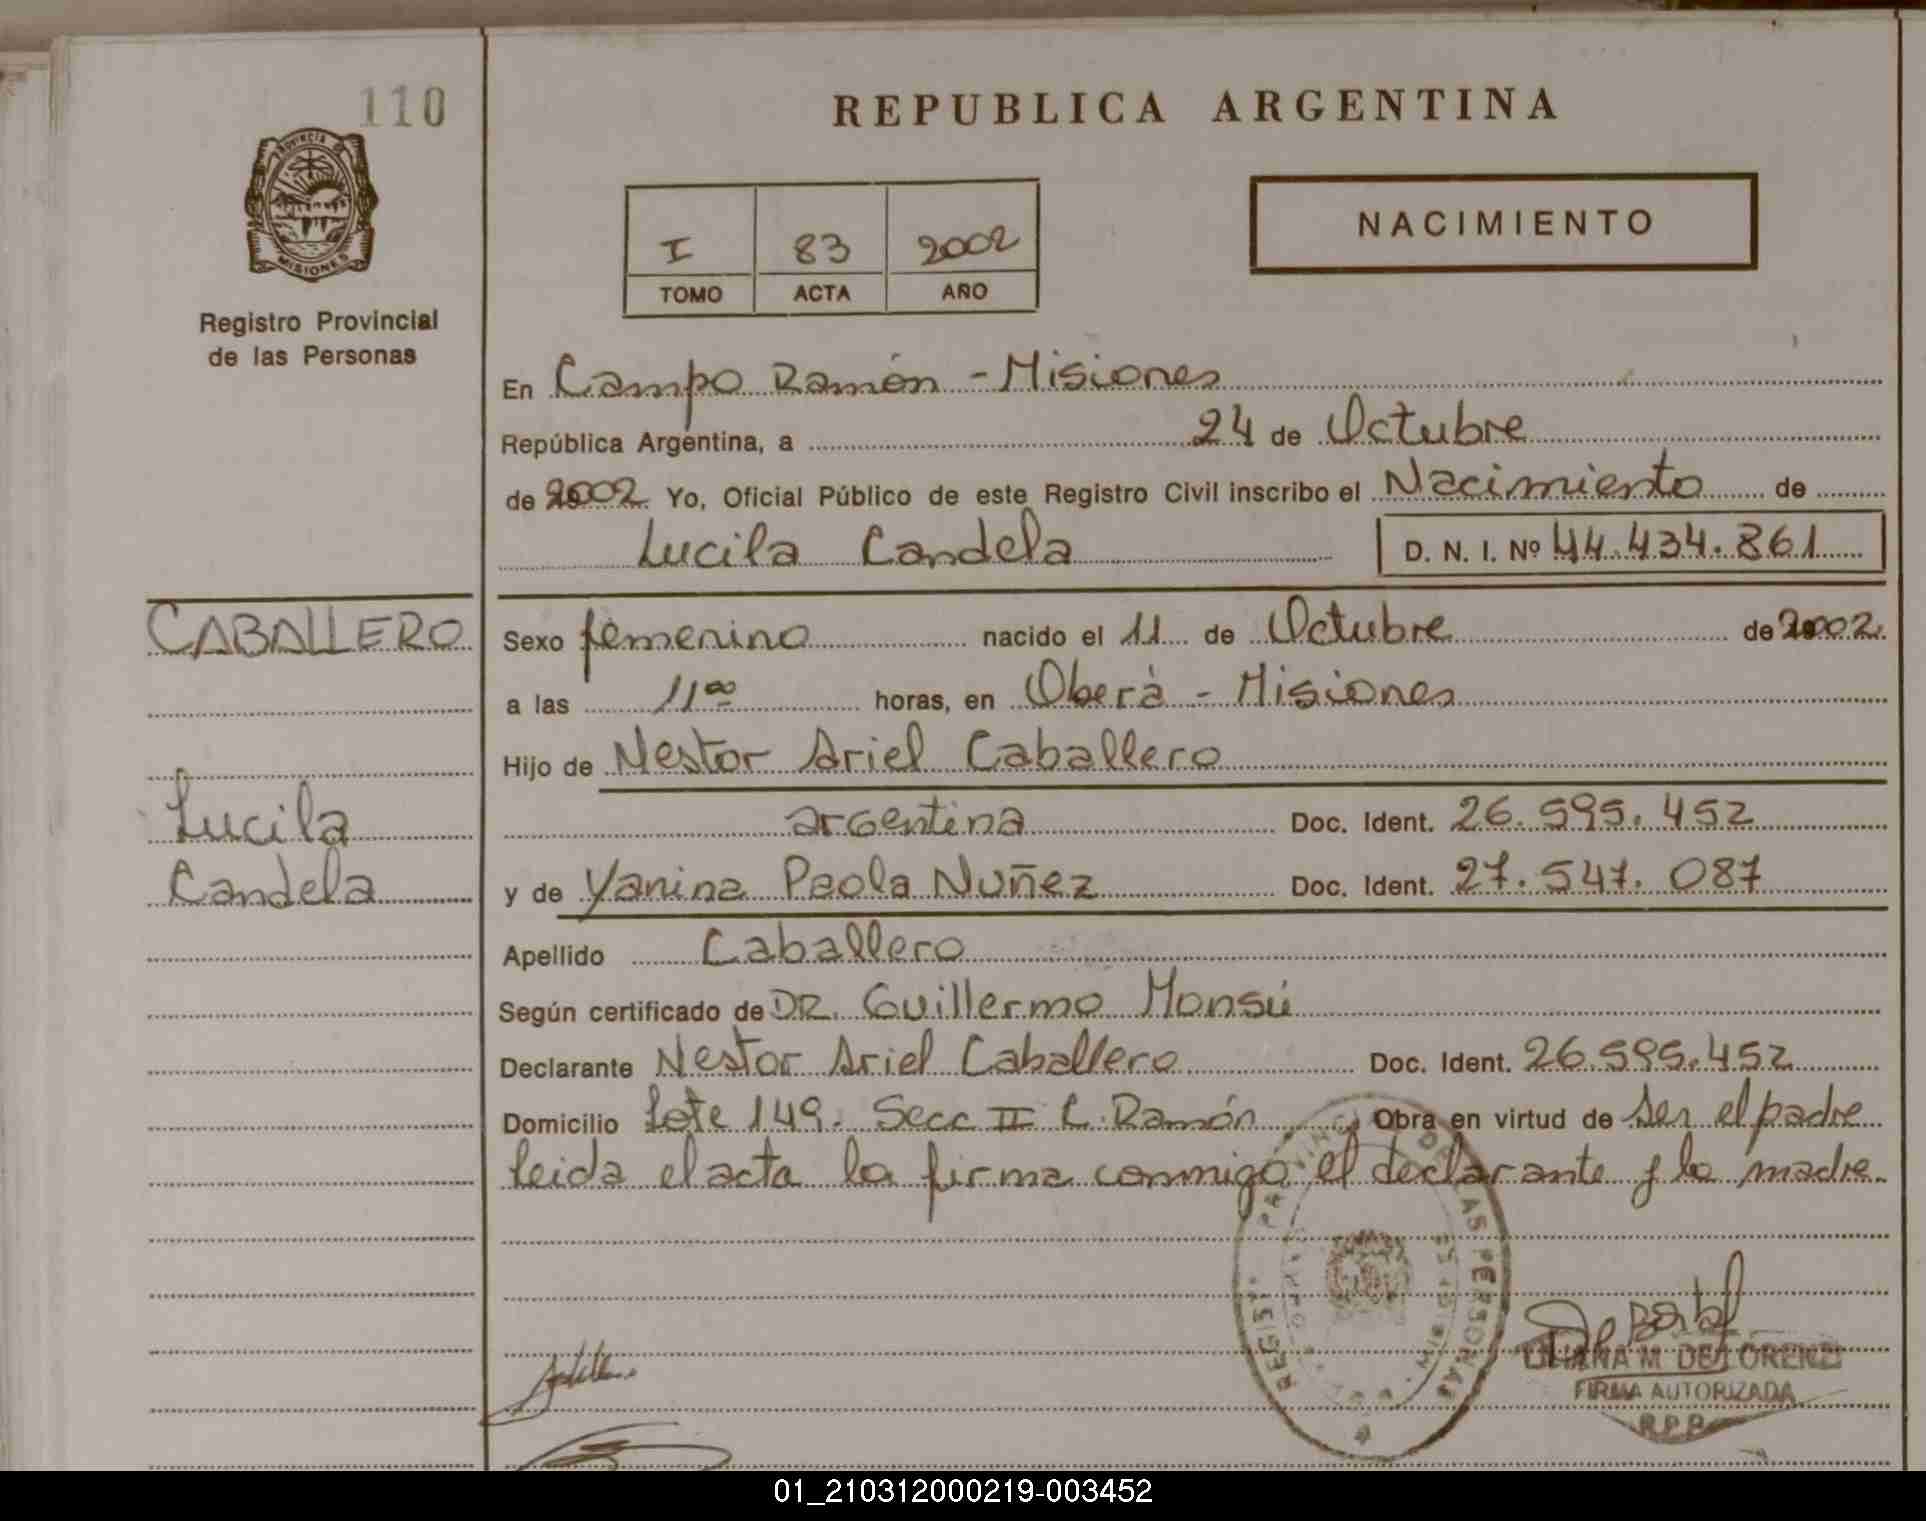 110
PROVINCIA DE
MISIONES
Registro Provincial
de las Personas
REPUBLICA ARGENTINA
I 83 2002
TOMO ACTA AÑO
NACIMIENTO
En Campo Ramón - Misiones
República Argentina, a 24 de Octubre
de 2002 Yo, Oficial Público de este Registro Civil inscribo el Nacimiento de
Lucila Candela D. N. I. Nº 44.434.861
CABALLERO
Lucila
Candela
Sexo femenino nacido el 11 de Octubre de 2002.
a las 11⁰⁰ horas, en Oberá - Misiones
Hijo de Nestor Ariel Caballero
argentina Doc. Ident. 26.595.452
y de Yanina Paola Nuñez Doc. Ident. 27.547.087
Apellido Caballero
Según certificado de DR. Guillermo Monsú
Declarante Nestor Ariel Caballero Doc. Ident. 26.595.452
Domicilio Lote 149. Secc II C. Ramón Obra en virtud de ser el padre
leida el acta la firma conmigo el declarante y la madre.
LILIANA M DE LORENZI
FIRMA AUTORIZADA
R.P.P.
01_210312000219-003452